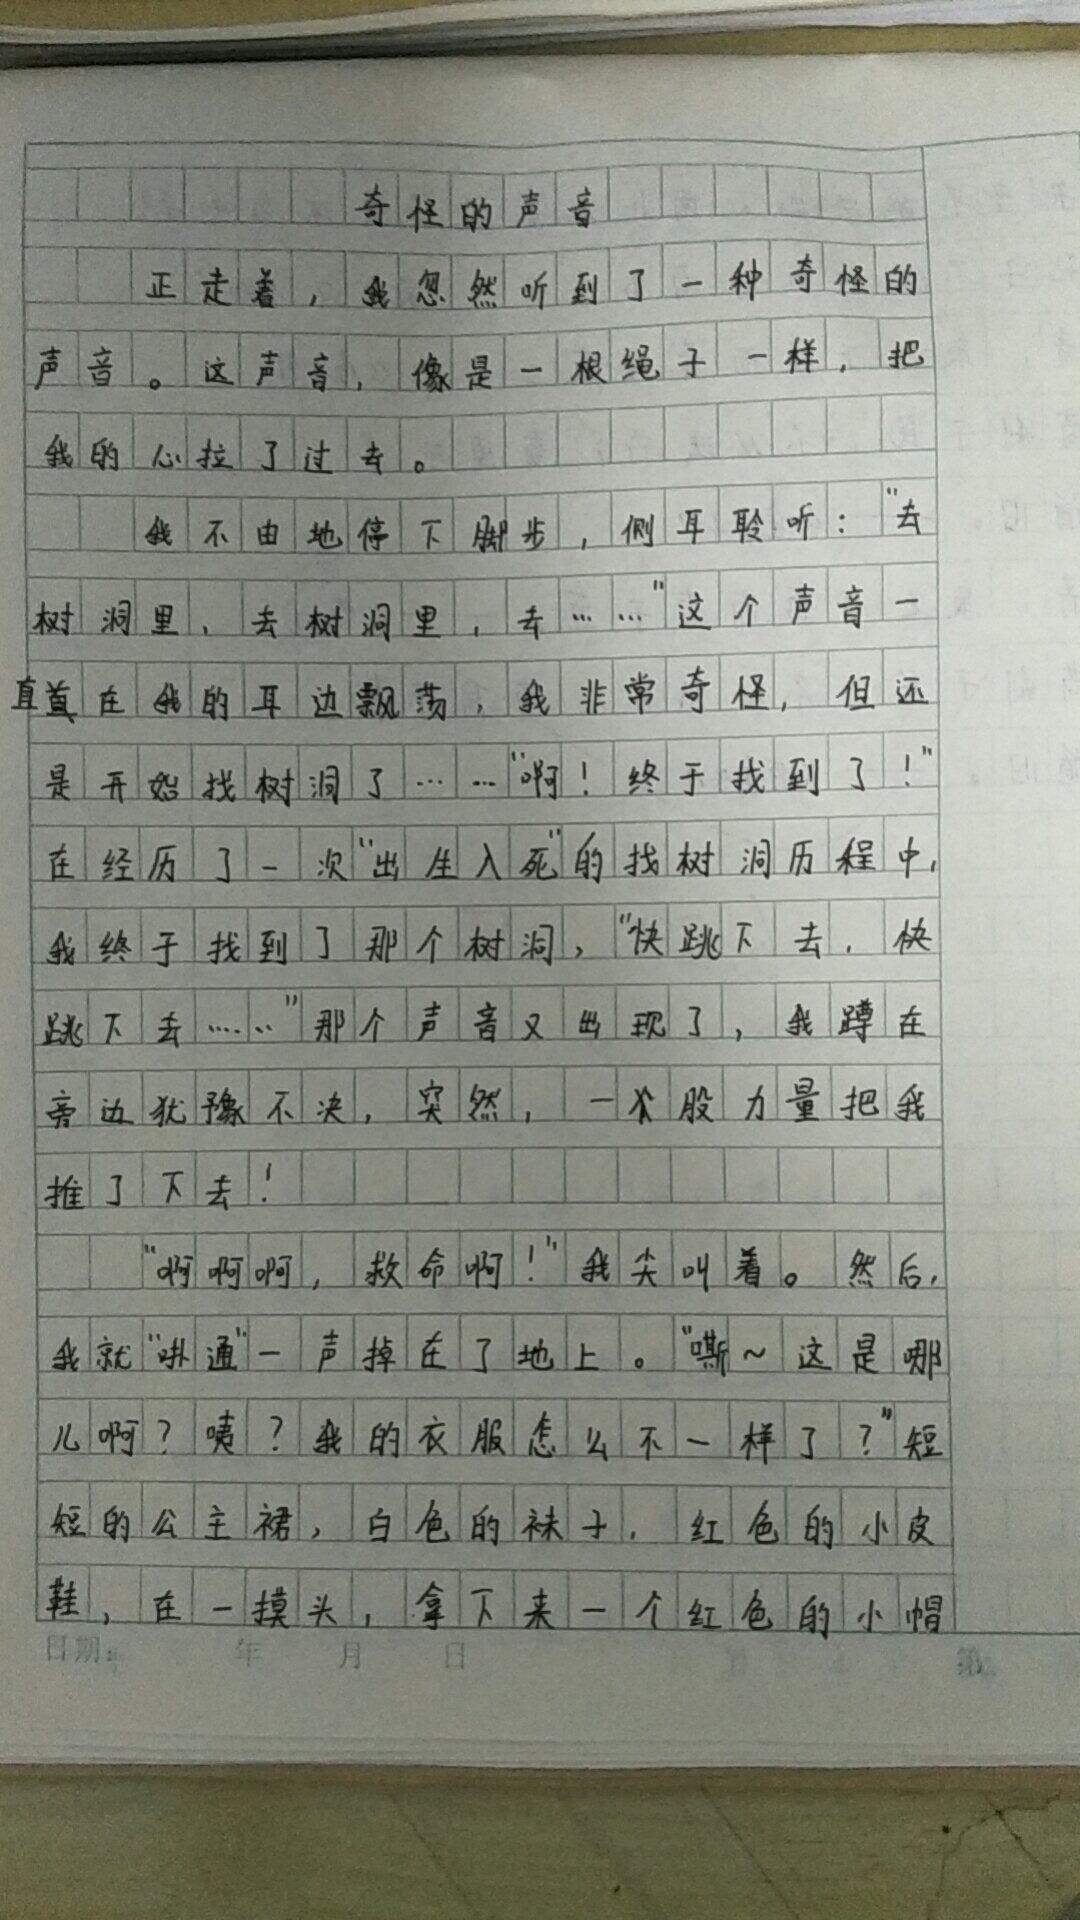 奇怪的声音
正走着，我忽然听到了一种奇怪的
声音。这声音，像是一根绳子一样，把
我的心拉了过去。
我不由地停下脚步，侧耳聆听：“去
树洞里，去树洞里，去……”这个声音一
直在我的耳边飘荡，我非常奇怪，但还
是开始找树洞了……“啊！终于找到了！”
在经历了一次“出生入死”的找树洞历程中，
我终于找到了那个树洞，“快跳下去，快
跳下去……”那个声音又出现了，我蹲在
旁边犹豫不决，突然，一股力量把我
推了下去！
“啊啊啊，救命啊！”我尖叫着。然后，
我就“哄通”一声掉在了地上。“嘶～这是哪
儿啊？咦？我的衣服怎么不一样了？”短
短的公主裙，白色的袜子，红色的小皮
鞋，在一摸头，拿下来一个红色的小帽
日期： 年 月 日